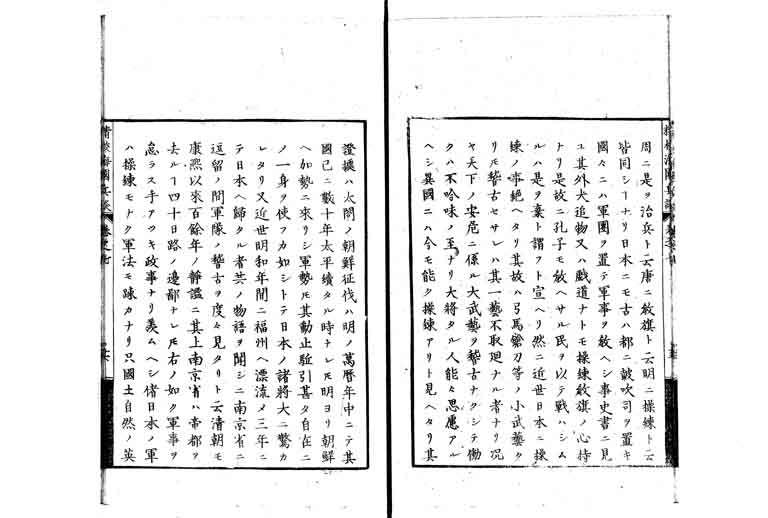 周ニ是ヲ治兵ト云唐ニ敎旗ト云明ニ操練ト云
皆同シーナリ日本ニモ古ハ都ニ鼓吹司ヲ置キ
國々ニハ軍團ヲ置テ軍事ヲ敎ヘシ事史書ニ見
ユ其外犬追物又ハ戯道ナトモ操練敎旗ノ心持
ナリ是故ニ孔子モ敎ヘサル民ヲ以テ戰ハシム
ルハ是ヲ棄ト謂フト宣ヘリ然ニ近世日本ニ操
練ノ事絶ヘタリ其故ハ弓馬鎗刀等ノ小武藝ク
リモ稽古セサレハ其一藝不取廻ナル者ナリ况
ヤ天下ノ安危ニ係ル大武藝ヲ稽古ナクシテ働
クハ不吟味ノ至ナリ大將タル人能々思慮アル
ヘシ異國ニハ今モ能ク操練アリト見ヘタリ其
證據ハ太閤ノ朝鮮征伐ハ明ノ萬曆年中ニテ其
國已ニ數十年太平續タル時ナレ𪜈明ヨリ朝鮮
ヘ加勢ニ來リシ軍勢𪜈其動止駈引甚タ自在ニ
ノ一身ヲ使フカ如シトテ日本ノ諸將大ニ驚カ
レタリ又近世明和年間ニ福州ヘ漂流メ三年ニ
テ日本ヘ歸タル者共ノ物語ヲ聞シニ南京省ニ
逗留ノ間軍隊ノ稽古ヲ度々見タリト云清朝モ
康熙以來百餘年ノ靜謐ニ其上南京省ハ帝都ヲ
去ルヿ四十日路ノ邉鄙ナレ𪜈右ノ如ク軍事ヲ
怠ラス手アツキ政事ナリ羨ムヘシ偖日本ノ軍
ハ操練モナク軍法モ疎カナリ只國土自然ノ英
精校海國兵談
卷之七